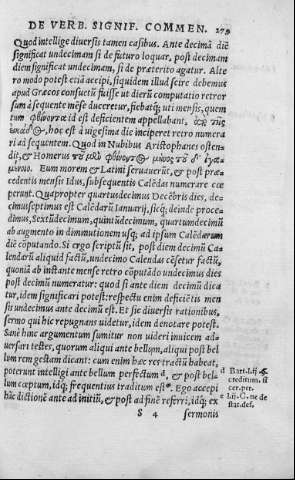 DE VERB. SIGNIF. COMMEN. 279
Quod intellige diversis tamen casibus. Ante decimā diē
significat undecimam si de futuro loquar, post decimam
diem significat undecimam, si de præterito agatur. Alte
ro modo potest etiā accipi, si quidem illud scire debemus
apud Græcos consuetū fuisse ut dierū computatio retror
sum à sequente mēse duceretur, fiebatq́; uti mensis, quem
eum φθίνοντα id est deficientem appellabant,
hoc est à uigesima die inciperet retro numera
ri ad sequentem. Quod in Nubibus Aristophanes osten
dit, & Homerus τοῦ μὲν φθίνοντος μηνὸς τοῦ δ'
Eum morem & Latini servaverūt, & post præ
cedentis mensis Idus, subsequentis Calēdas numerare cœ
perunt. Quapropter quartusdecimus Decēbris dies, de-
cimusseptimus est Calēdarū Ianuarij, sicq́; deinde proce
dimus, Sextūdecimum, quintūdecimum, quartumdecimū
ab augmento in diminutionem usq; ad ipsum Calēdarum
diē cōputando. Si ergo scriptū sit, post diem decimū Ca-
lendarū aliquid factū, undecimo Calendas cēsetur factū,
quoniā ab instante mense retro cōputādo undecimus dies
post decimū numeratur: quod si ante diem decimū dica
tur, idem significari potest: respectu enim deficiētis men
sis undecimus ante decimū est. Et sic diversis rationibus,
sermo qui hic repugnans uidetur, idem denotare potest.
Sanè hinc argumentum sumitur non uideri inuicem ad-
versari testes, quorum aliqui ante bellum, aliqui post bel
lum rem gestam dicant: cum enim hæc retractū habeat,
poterunt intelligi ante bellum perfectum d, & post bel-
lum cœptum, idq́; frequentius traditum est e. Ego accepi
hāc dictionē ante ad initiū, & post ad finē referri, idq́; ex
S 4 sermonis
d Bart. l. ij. §.
creditum. si
cer. pet.
l. ij. C. ne de
stat. def.